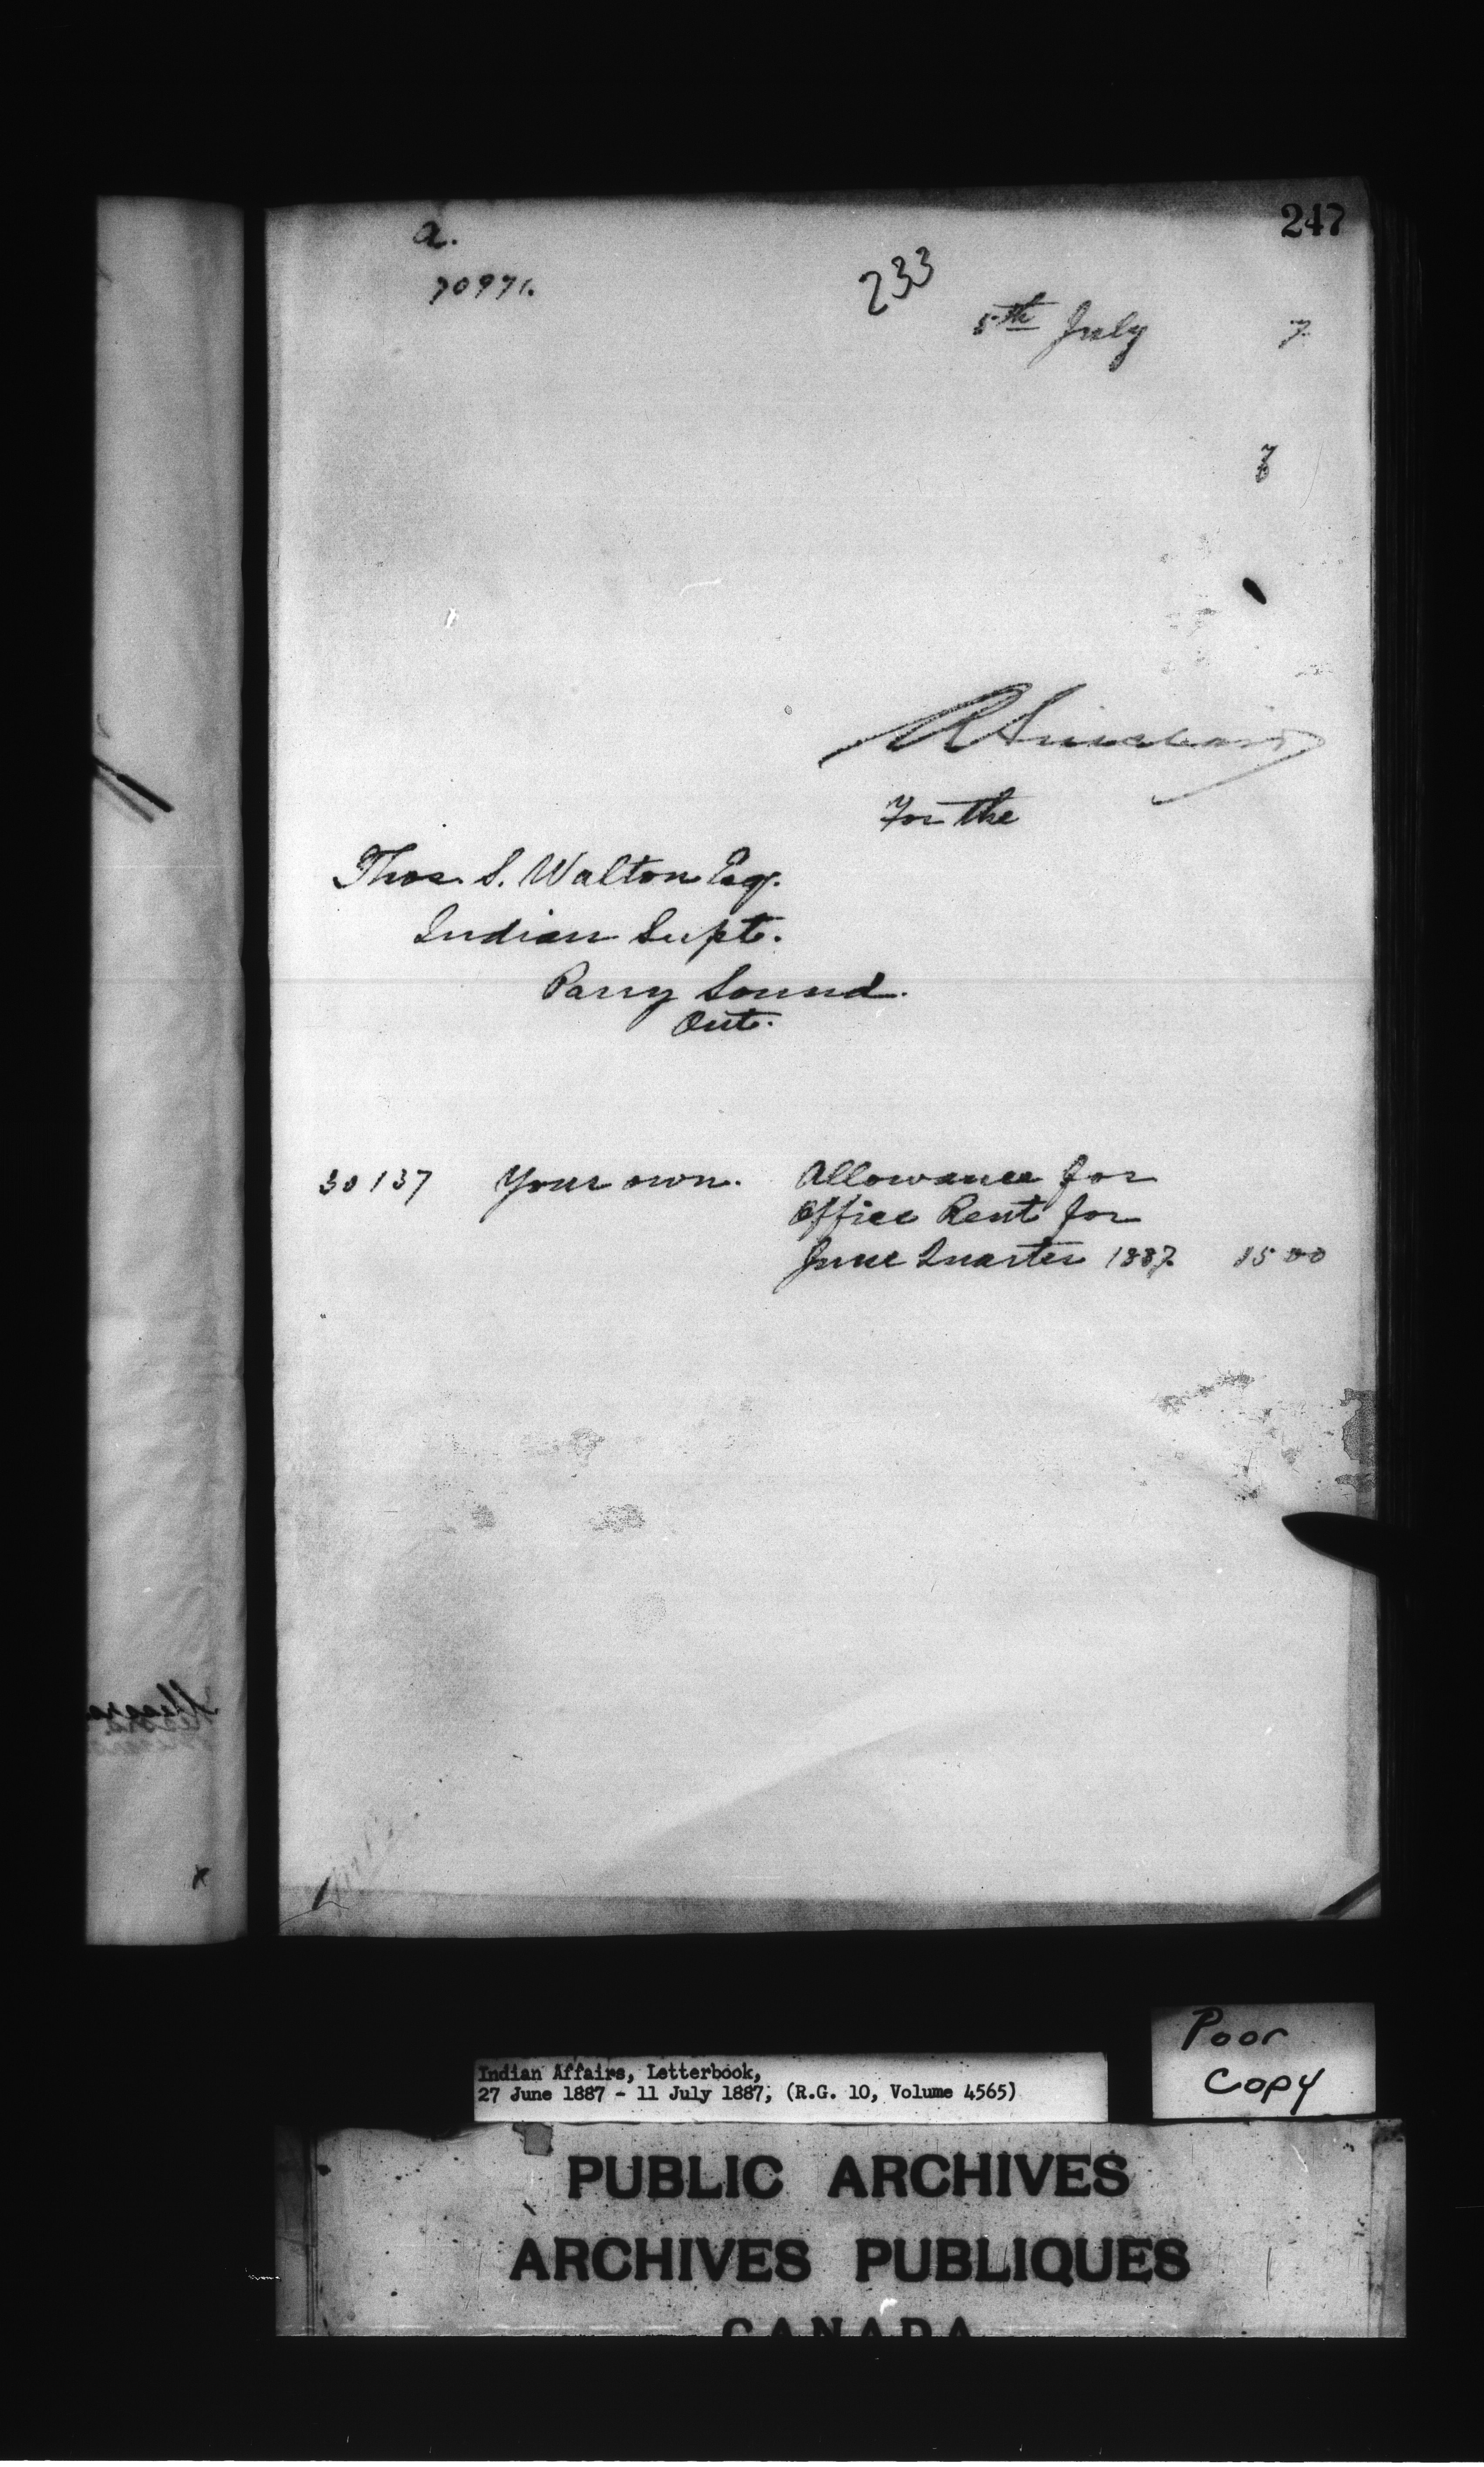 247
a.
70971.
233
5th July 7
7
R Sinclair
For the
Thos. S. Walton Esq.
Indian Supt.
Parry Sound.
Ont.
30137 Your own. Allowance for
Office Rent for
June Quarter 1887. 15 00
Poor
Copy
Indian Affairs, Letterbook,
27 June 1887 - 11 July 1887, (R.G. 10, Volume 4565)
PUBLIC ARCHIVES
ARCHIVES PUBLIQUES
CANADA